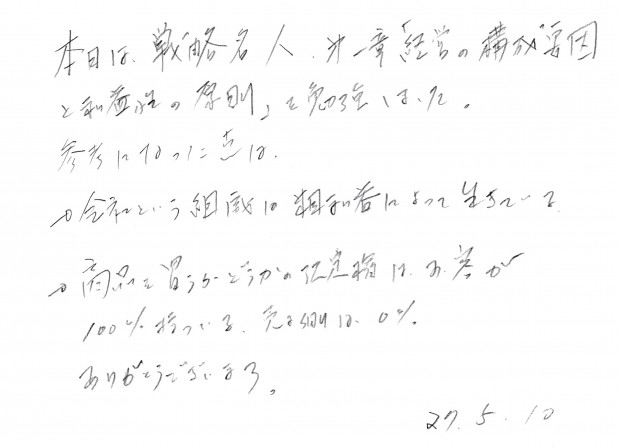 本日は、戦略名人、第一章「経営の構成要因
と利益性の原則」を勉強しました。
参考になった点は、
→会社という組織は粗利益によって生きている。
→商品を買うかどうかの決定権は、お客が
100%持っている。売る側は、0%。
ありがとうございます。
27.5.10